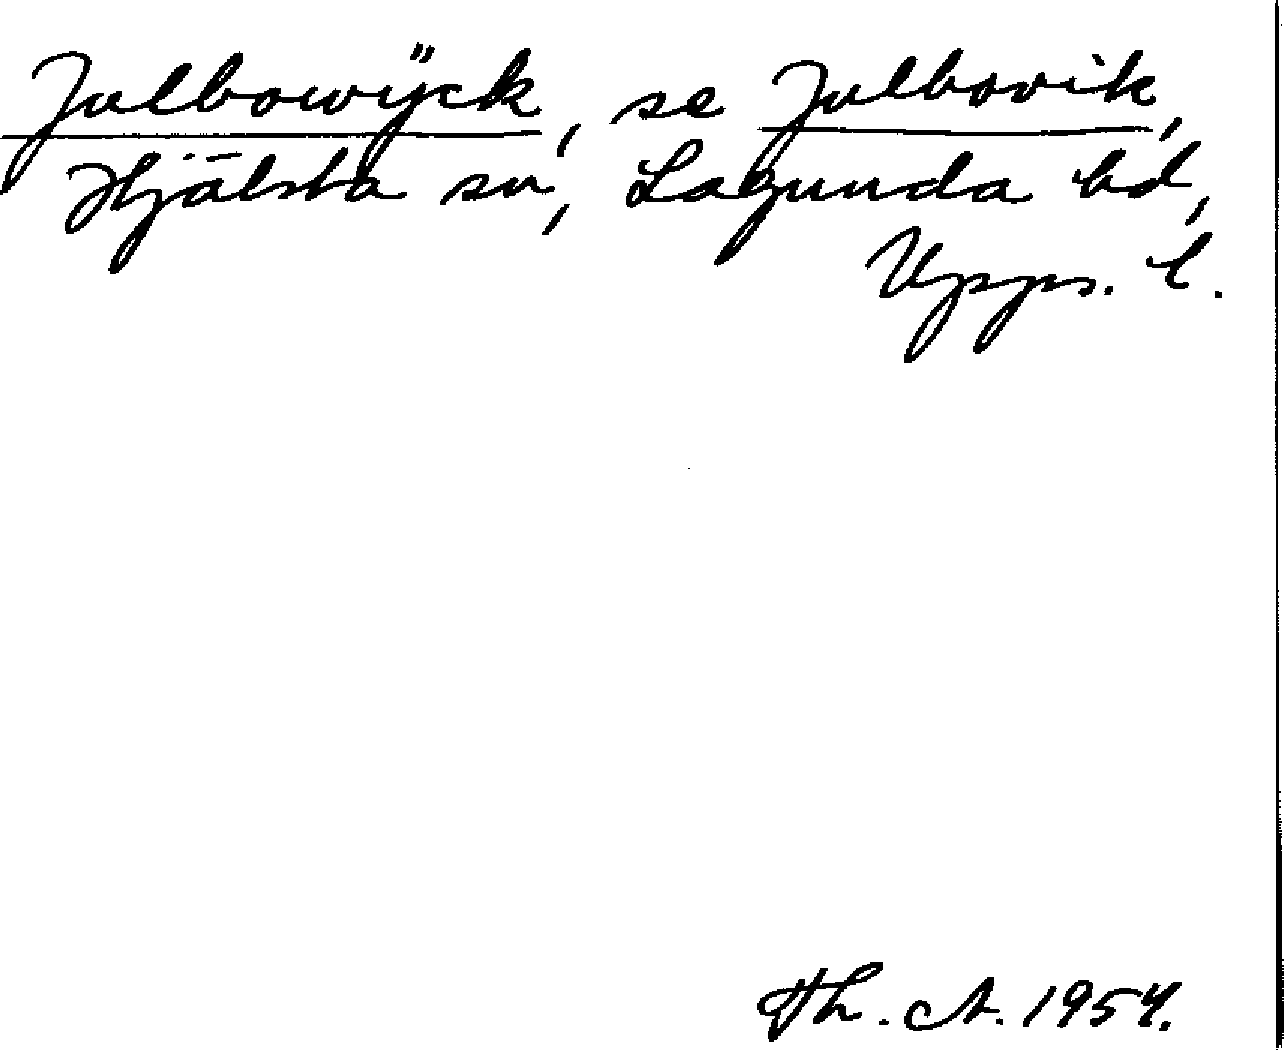 Julbowÿck, se Julbovik,
Hjälsta sn, Lagunda hd,
Upps. l.
Th. A. 1954.